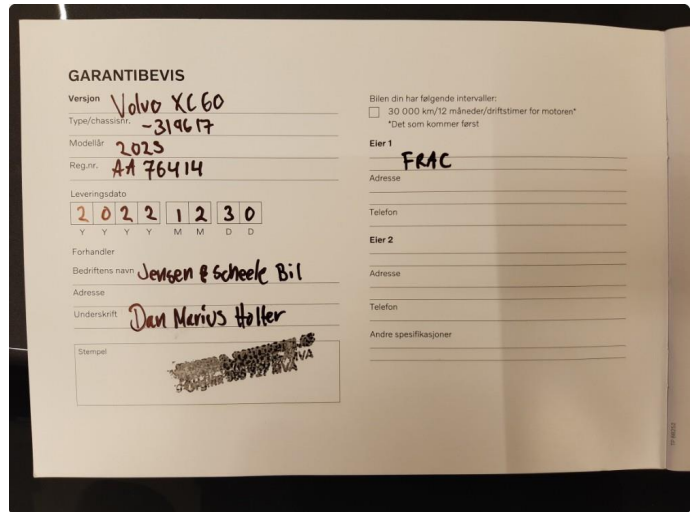 GARANTIBEVIS
Versjon Volvo XC60
Type/chassisnr. -319617
Modellår 2023
Reg.nr. AA 76414
Leveringsdato
2 0 2 2 1 2 3 0
Y Y Y Y M M D D
Forhandler
Bedriftens navn Jensen & Scheele Bil
Adresse
Underskrift Dan Marius Holter
Stempel
MVA
MVA
Bilen din har følgende intervaller:
30 000 km/12 måneder/driftstimer for motoren*
*Det som kommer først
Eier 1
FRAC
Adresse
Telefon
Eier 2
Adresse
Telefon
Andre spesifikasjoner